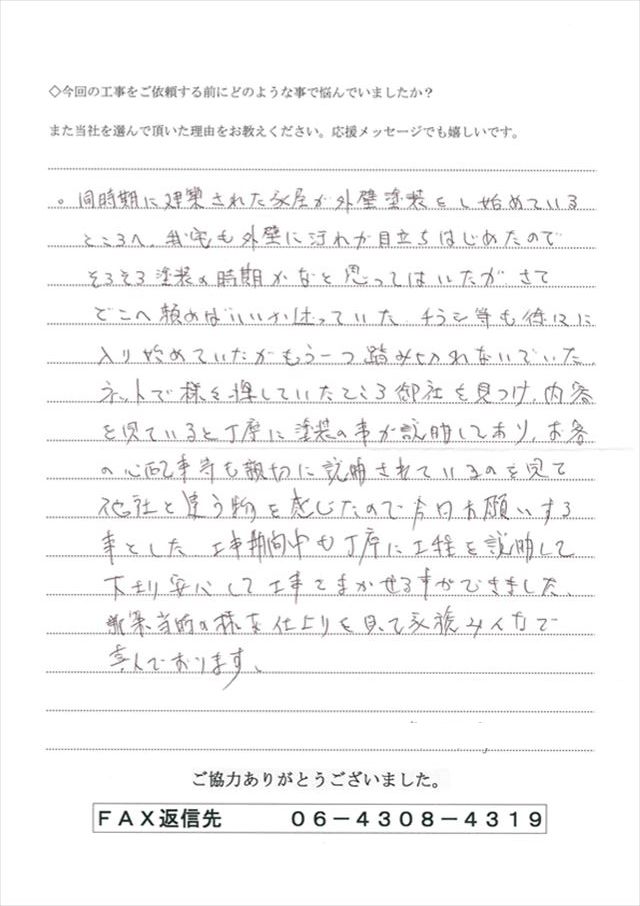 ◇今回の工事をご依頼する前にどのような事で悩んでいましたか？
また当社を選んで頂いた理由をお教えください。応援メッセージでも嬉しいです。
。同時期に建築された家屋が外壁塗装をし始めている
ところへ、我宅も外壁に汚れが目立ちはじめたので
そろそろ塗装の時期かなと思ってはいたが、さて
どこへ頼めばいいか迷っていた。チラシ等も
入り始めていたがもう一つ踏み切れないでいた。
ネットで様々探していたところ御社を見つけ、内容
を見ていると丁寧に塗装の事が説明しており、お客
の心配事等も親切に説明されているのを見て
他社と違う物を感じたので今回お願いする
事とした。工事期間中も丁寧に工程を説明して
下さり安心して工事をまかせる事ができました。
新築当時の様な仕上りを見て家族みんなで
喜んでおります。
ご協力ありがとうございました。
ＦＡＸ返信先 ０６－４３０８－４３１９